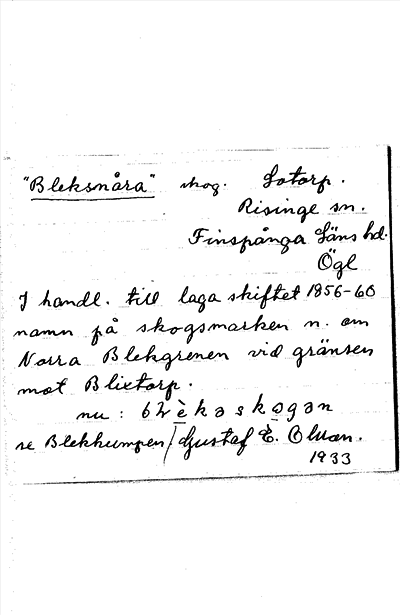 "Bleksnåra" skog. Sotorp.
Risinge sn.
Finspånga Läns hd.
Ögl
I handl. till laga skiftet 1856-60
namn på skogsmarken n. om
Norra Blekgrenen vid gränsen
mot Blixtorp.
nu: blèkaskogan
se Blekhumpen / Gustaf E. Olson.
1933